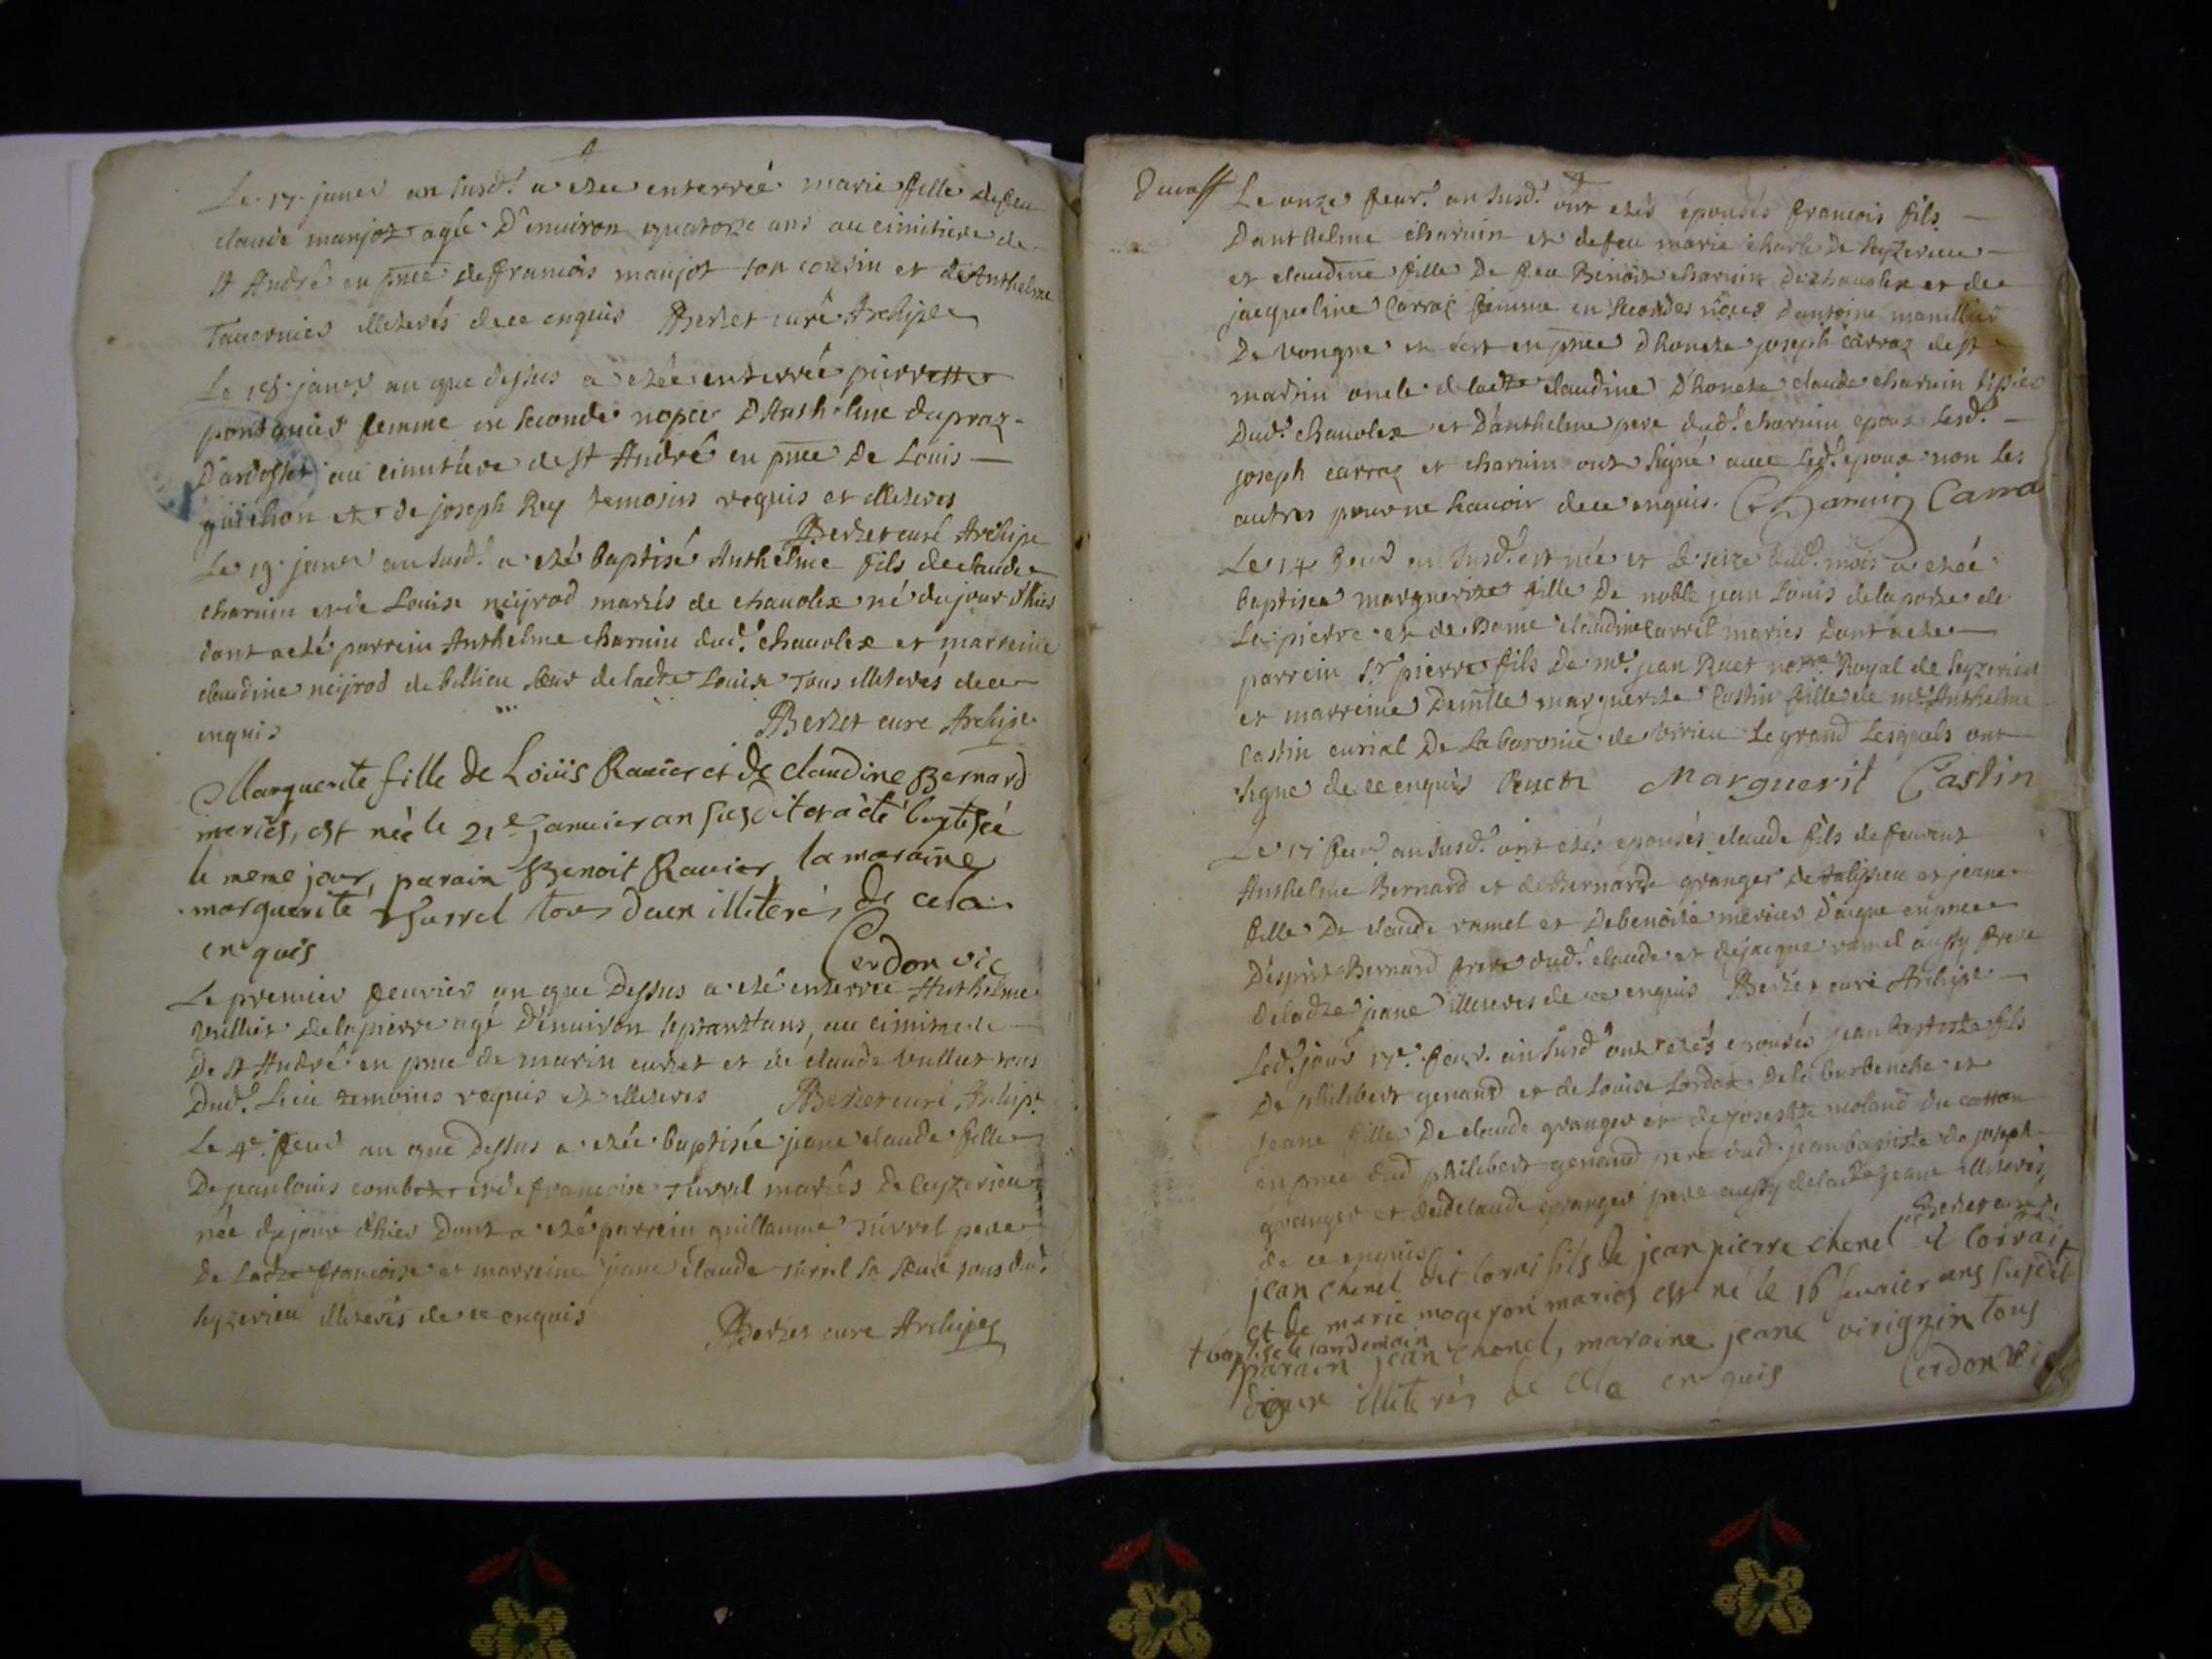 Le 17 janer an susd.t a etee enterrée marie fille defeu
claude manjot agée D'environ quatorze ans au cimitiere de
st André en pnce de francois manjot son cousin et de Anthelme
Tavernier illeterés de ce enquis Berzet curé Archipr
Le 18 janer an que dessus a etée enterrée pierrette
pontanier femme en seconde noper D'Anthelme dupraz
D'ardosset au cimitiere de st André en pnce De Louis
guichon et de joseph Rey temoins requis et illeteres
Berzet curé Archipr
Le 19 janer an susd.t a eté baptisé Anthelme fils de claude
charuin et de Louise neijrod mariés de chavolex né du jour d'hier
dont a eté parrein Anthelme charuin dud.t chavolex et marreine
claudine neijrod de billieu sœur de ladte Louise Tous illeterés de ce
enquis Berzet cure Archipr
Marguerite fille de Loüis Ravier et de claudine Bernard
meriés, est néé le 21e Janvier an susdit et à èté baptiséé
le meme jour, parain Benoit Ravier, la maraine
marguerite Turrel tous deux illiterés de cela
enquis Cerdon vic
Le premier fevrier an que Dessus a eté enterré Anthelme
Vulliet de lapierre agé D'environ septante ans, au cimitiere
De st André en pnce de marin curtet et de claude Vulliet tous
Dud.t Lieu temoins requis et illeteres Berzet curé Archipr
Le 4e fevr an que Dessus a etée baptisée jeane claude fille
De jean louis combet et de francoise Turrel mariés De ceyzerieu
née du jour d'hier Dont a eté parrein guillaume Turrel pere
de Ladte francoise et marreine jeane claude Turrel sa sœur tous dud.t
seyzerieu illeterés de ce enquis
Berzet cure Archipr
Le onze fevr. an susd.t ont etés épousés francois fils
Danthelme charuin et de feu marie charle De seyzerieu
et claudine fille De feu Benoit charuin De chavolex et de
jacqueline Carraz femme en secondes noces d'antoine
De vongne et c'est en pnce D'honete joseph carraz de st
martin oncle de ladte claudine D'honete claude charuin
Dud.t chavolex et D'anthelme pere dud.t charuin epoux Lesd.t
joseph carraz et charuin ont signé avec led.t epoux non les
autres pour ne scavoir de ce enquis. Charuin Carra
Le 14 fevr an susd.t est née et le seize dud.t mois a etée
baptisee marguerite fille De noble jean Louis delaporte de
La pierre et de Dame claudine Carrel mariés Dont a ete
parrein S.r pierre fils De me. jean Ruet notre Royal de seyzerieu
et marreine Demlle marguerite Castin fille de me. Anthelme
Castin curial De La baronie de virieu Le grand Lesquels ont
signe de ce enquis Ruet Marguerit Castin
Le 17 fevr an susd.t ont etés epousés claude fils de feu
Anthelme Bernard et de Bernarde granger de talissieu et jeane
fille De claude ramel et De benoite mercier D'aigne en pnce
D'esprit Bernard frere dud.t claude et de jacque ramel aussy frere
de ladte jeane illeteres de ce enquis Berzet curé Archipr
Led.t jour 17e. fevr. an susd.t ont etés epousés jean baptiste fils
De philibert genand et de Louise Lordat De la burbanche et
Jeane fille De claude granger et de josephte moland du catton
en pnce dud.t philibert genand pere dud.t jean baptiste de joseph
granger et dud claude granger pere aussy de ladte jeane illeterés
de ce enquis Berzet curé
jean chenel dit lorrai fils de jean pierre chenel d lorrai
et de marie mogeron mariés est né le 16 fevrier ans susdit
+ baptisé le landemain
parain jean chenel, maraine jeane virignin tous
deux illiterés de cela enquis Cerdon vic